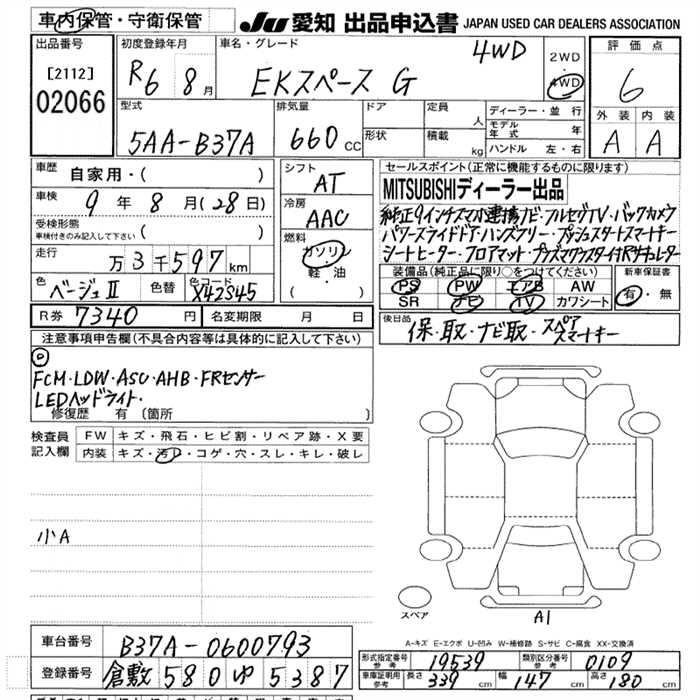 車内保管・守衛保管
JU 愛知 出品申込書 JAPAN USED CAR DEALERS ASSOCIATION
出品番号
[2112]
02066
初度登録年月
R6 8月
車名・グレード
EKスペース G 4WD
2WD
・
4WD
評価点
6
外装 内装
A A
型式
5AA-B37A
排気量
660 cc
ドア
形状
定員 人
積載 kg
ディーラー・並行
モデル年式 年
ハンドル 左・右
車歴
自家用・( )
車検
9年 8月(28日)
受検形態
車検付きのみ記入して下さい ( )
走行
万3千597km
色
ベージュII
色替
色コード
X42S45
シフト
AT
冷房
AAC
燃料
ガソリン
軽・油
( )
セールスポイント(正常に機能するものに限ります)
MITSUBISHIディーラー出品
純正9インチスマホ連携ナビ・フルセグTV・バックカメラ
パワースライドドア・ハンズフリー・プッシュスタートスマートキー
シートヒーター・フロアマット・プラズマクラスター付リヤサーキュレーター
装備品(純正品に限り○をつけてください)
PS PW エアB AW
SR ナビ TV カワシート
新車保証書
有・無
R券 7340円
名変期限 月 日
後日品
保・取・ナビ取・スペアスマートキー
注意事項申告欄(不具合内容等は具体的に記入して下さい)
◎
FCM・LDW・ASC・AHB・FRセンサー
LEDヘッドライト・
修復歴 有 (箇所 )
検査員記入欄
FW キズ・飛石・ヒビ割・リペア跡・X要
内装 キズ・汚レ・コゲ・穴・スレ・キレ・破レ
小A
スペア
A1
A-キズ E-エクボ U-凹み W-補修跡 S-サビ C-腐食 XX-交換済
車台番号 B37A-0600793
登録番号 倉敷 580 ゆ 5387
形式指定番号 参考 19539
類別区分番号 参考 0109
車庫証明用 参考 長さ 339 cm 幅 147 cm 高さ 180 cm